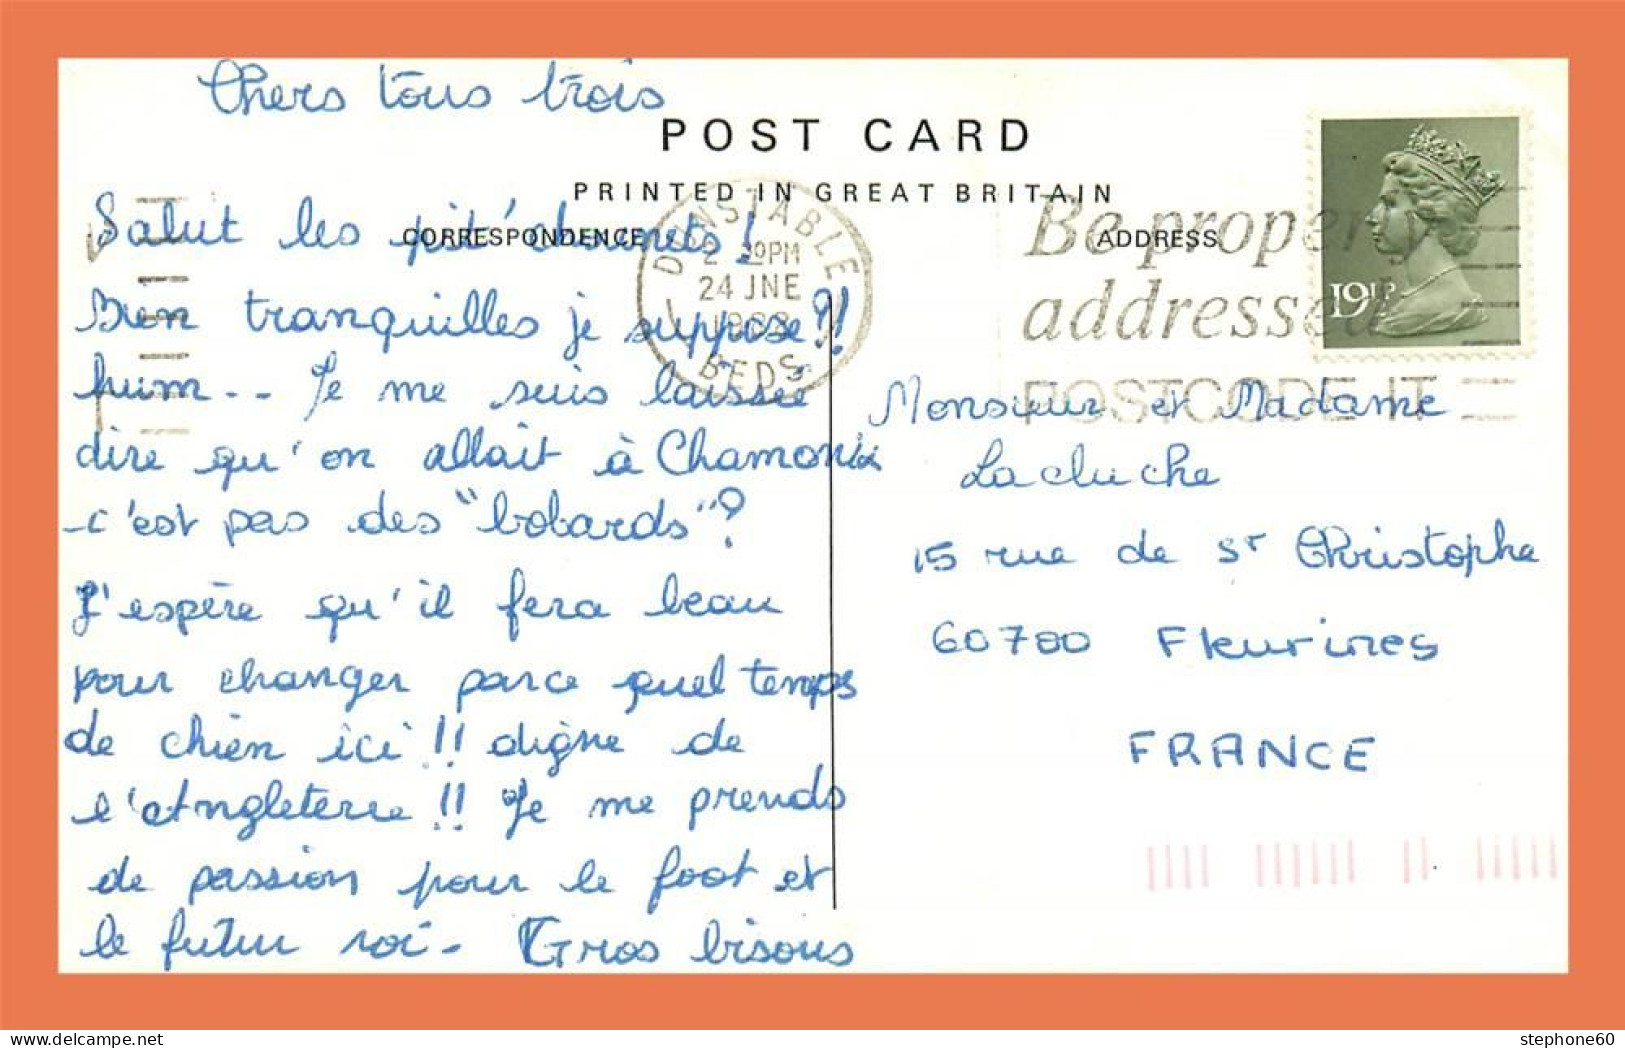 Chers tous trois
POST CARD
PRINTED IN GREAT BRITAIN
CORRESPONDENCE
ADDRESS
Salut les pit's !
Bien tranquilles je suppose?!!
hum... Je me suis laissée
dire qu'on allait à Chamonix
c'est pas des "bobards"?
J'espère qu'il fera beau
pour changer parce quel temps
de chien ici!! digne de
l'Angleterre!! Je me prends
de passion pour le foot et
le futur roi. Gros bisous
DUNSTABLE
2 30PM
24 JNE
1982
BEDS.
Be properly
addressed
POSTCODE IT
19½P
Monsieur et Madame
Lacluche
15 rue de St Christophe
60700 Fleurines
FRANCE
stephone60